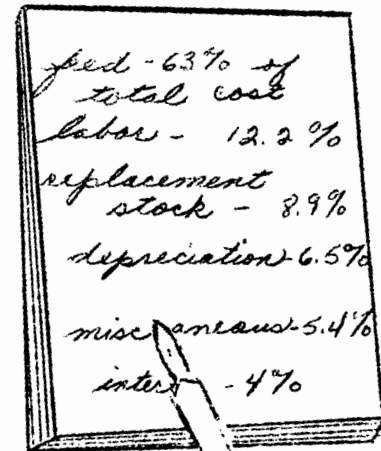 feed - 63% of
total cost
labor - 12.2%
replacement
stock - 8.9%
depreciation - 6.5%
misc aneous - 5.4%
inter - 4%